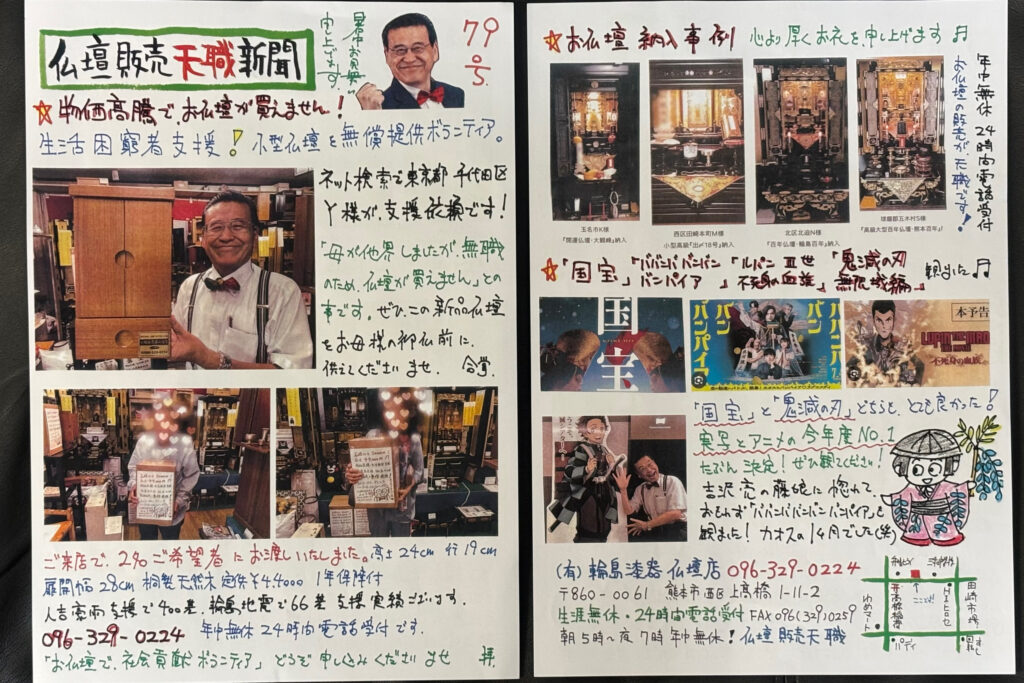 仏壇販売天職新聞
暑中お見舞い
申し上げます。
795
☆物価高騰で、お仏壇が買えません!
生活困窮者支援!小型仏壇を無償提供ボランティア。
ネット検索で東京都千代田区
Y様が、支援依頼です!
「母が他界しましたが、無職
のため、仏壇が買えません」との
事です。ぜひ、この新品仏壇
をお母様の御仏前に、
供えしてくださいませ。合掌。
ご来店で、2名ご希望者にお渡しいたしました。高さ24cm 行19cm
扉開幅28cm 桐製天然木 定価¥44000 1年保障付
人吉豪雨支援で400基、輪島地震で66基支援実績ございます。
096-329-0224 年中無休24時間電話受付です。
「お仏壇で、社会貢献ボランティア」どうぞ申し込みくださいませ 拝。
☆お仏壇納入事例 心より厚くお礼を申し上げます♬
年中無休24時間電話受付
お仏壇の販売が、天職です!
玉名市K様
『開運仏壇・大観峰』納入
西区田崎本町M様
小型高級『出〆18号』納入
北区北迫N様
『百年仏壇・輪島百年』納入
球磨郡五木村S様
『高級大型百年仏壇・熊本百年』
☆「国宝」「ババンババンバンバンパイア」「ルパン三世 不死身の血族」「鬼滅の刃 無限城編」観ました♬
国宝
バババンバンバンパイア
本予告
LUPIN THE IIIRD
不死身の血族
「国宝」と「鬼滅の刃」どちらも、とても良かった!
実写とアニメの今年度NO.1
たぶん決定!ぜひ観てください!
吉沢亮の藤娘に惚れて、
おもわず「ババンババンバンバンパイア」も
観ました!カオスの1ヶ月でした(笑)
(有)輪島漆器仏壇店 096-329-0224
〒860-0061 熊本市西区上高橋1-11-2
生涯無休・24時間電話受付 FAX096(329)0259
朝5時〜夜7時 年中無休!仏壇販売天職
ゆめマート
高橋稲荷
ここです!
HIヒロセ
田崎市場